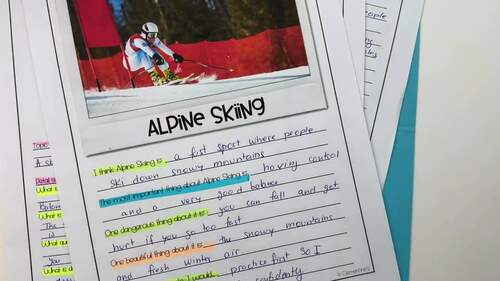 ALPINE SKIING
I think Alpine Skiing is a fast sport where people
ski down snowy mountains
The most important thing about Alpine Skiing is having control
and a very good balance
One dangerous thing about it is you can fall and get
hurt if you go too fast
One beautiful thing about it is the snowy mountains
and fresh winter air
I would practice first so I
confidently
Topic
A s
Detail
What is
The
What
What is d
people